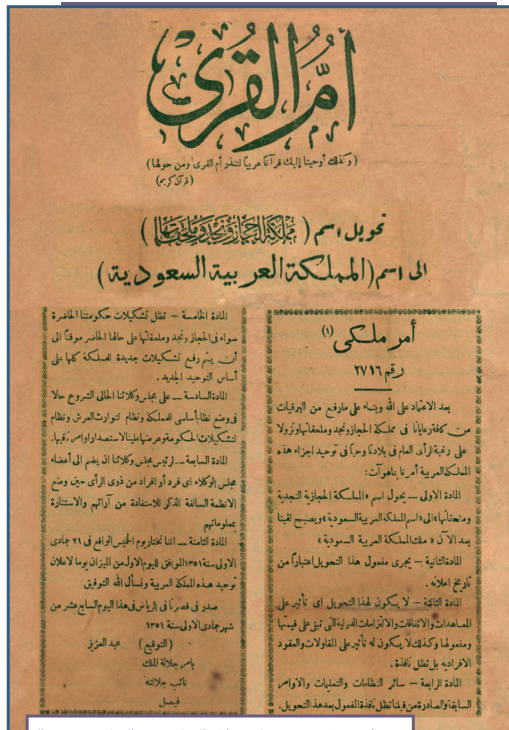 أم القرى
( وكذلك أوحينا إليك قرآنا عربيا لتنذر أم القرى ومن حولها )
( قرآن كريم )
تحويل اسم ( مملكة الحجاز ونجد وملحقاتها )
الى اسم ( المملكة العربية السعودية )
أمر ملكي (١)
رقم ٢٧١٦
بعد الاعتماد على الله وبناء على مارفع من البرقيات
من كافة رعايانا في مملكة الحجاز ونجد وملحقاتها ونزولا
على رغبة الرأى العام فى بلادنا وحبا فى توحيد اجزاء هذه
المملكة العربية أمرنا بما هو آت :
المادة الاولى — يحول اسم « المملكة الحجازية النجدية
وملحقاتها » الى « اسم المملكة العربية السعودية » ويصبح لقبنا
بعد الآن « ملك المملكة العربية السعودية »
المادة الثانية — يجرى مفعول هذا التحويل اعتبارا من
تاريخ اعلانه .
المادة الثالثة — لا يكون لهذا التحويل اى تأثير على
المعاهدات والاتفاقات والالتزامات الدولية التى تبقى على قيمتها
ومفعولها وكذلك لا يكون له تأثير على المقاولات والعقود
الافرادية بل تظل نافذة .
المادة الرابعة — سائر النظامات والتعليمات والاوامر
السابقة والصادرة من قبلنا تظل نافذة المفعول بعد هذا التحويل .
المادة الخامسة — تظل تشكيلات حكومتنا الحاضرة
سواء فى الحجاز ونجد وملحقاتها على حالها الحاضر موقتا الى
أن يتم رفع تشكيلات جديدة للمملكة كلها على
أساس التوحيد الجديد .
المادة السادسة — على مجلس وكلائنا الحالى الشروع حالا
فى وضع نظام أساسى للمملكة ونظام لتوارث العرش ونظام
لتشكيلات الحكومة وعرضها علينا لاستصدار اوامرنا فيها .
المادة السابعة — لرئيس مجلس وكلائنا ان يضم الى أعضاء
مجلس الوكلاء اى فرد أو افراد من ذوى الرأى حين وضع
الانظمة السالفة الذكر للاستفادة من آرائهم والاستنارة
بمعلوماتهم
المادة الثامنة — اننا نختار يوم الخميس الواقع فى ٢١ جمادى
الاولى سنة ١٣٥١ الموافق لليوم الاول من الميزان يوما لاعلان
توحيد هذه المملكة العربية ونسأل الله التوفيق
صدر فى قصرنا فى الرياض فى هذا اليوم السابع عشر من
شهر جمادى الاولى سنة ١٣٥١
( التوقيع ) عبد العزيز
بامر جلالة الملك
نائب جلالته
فيصل